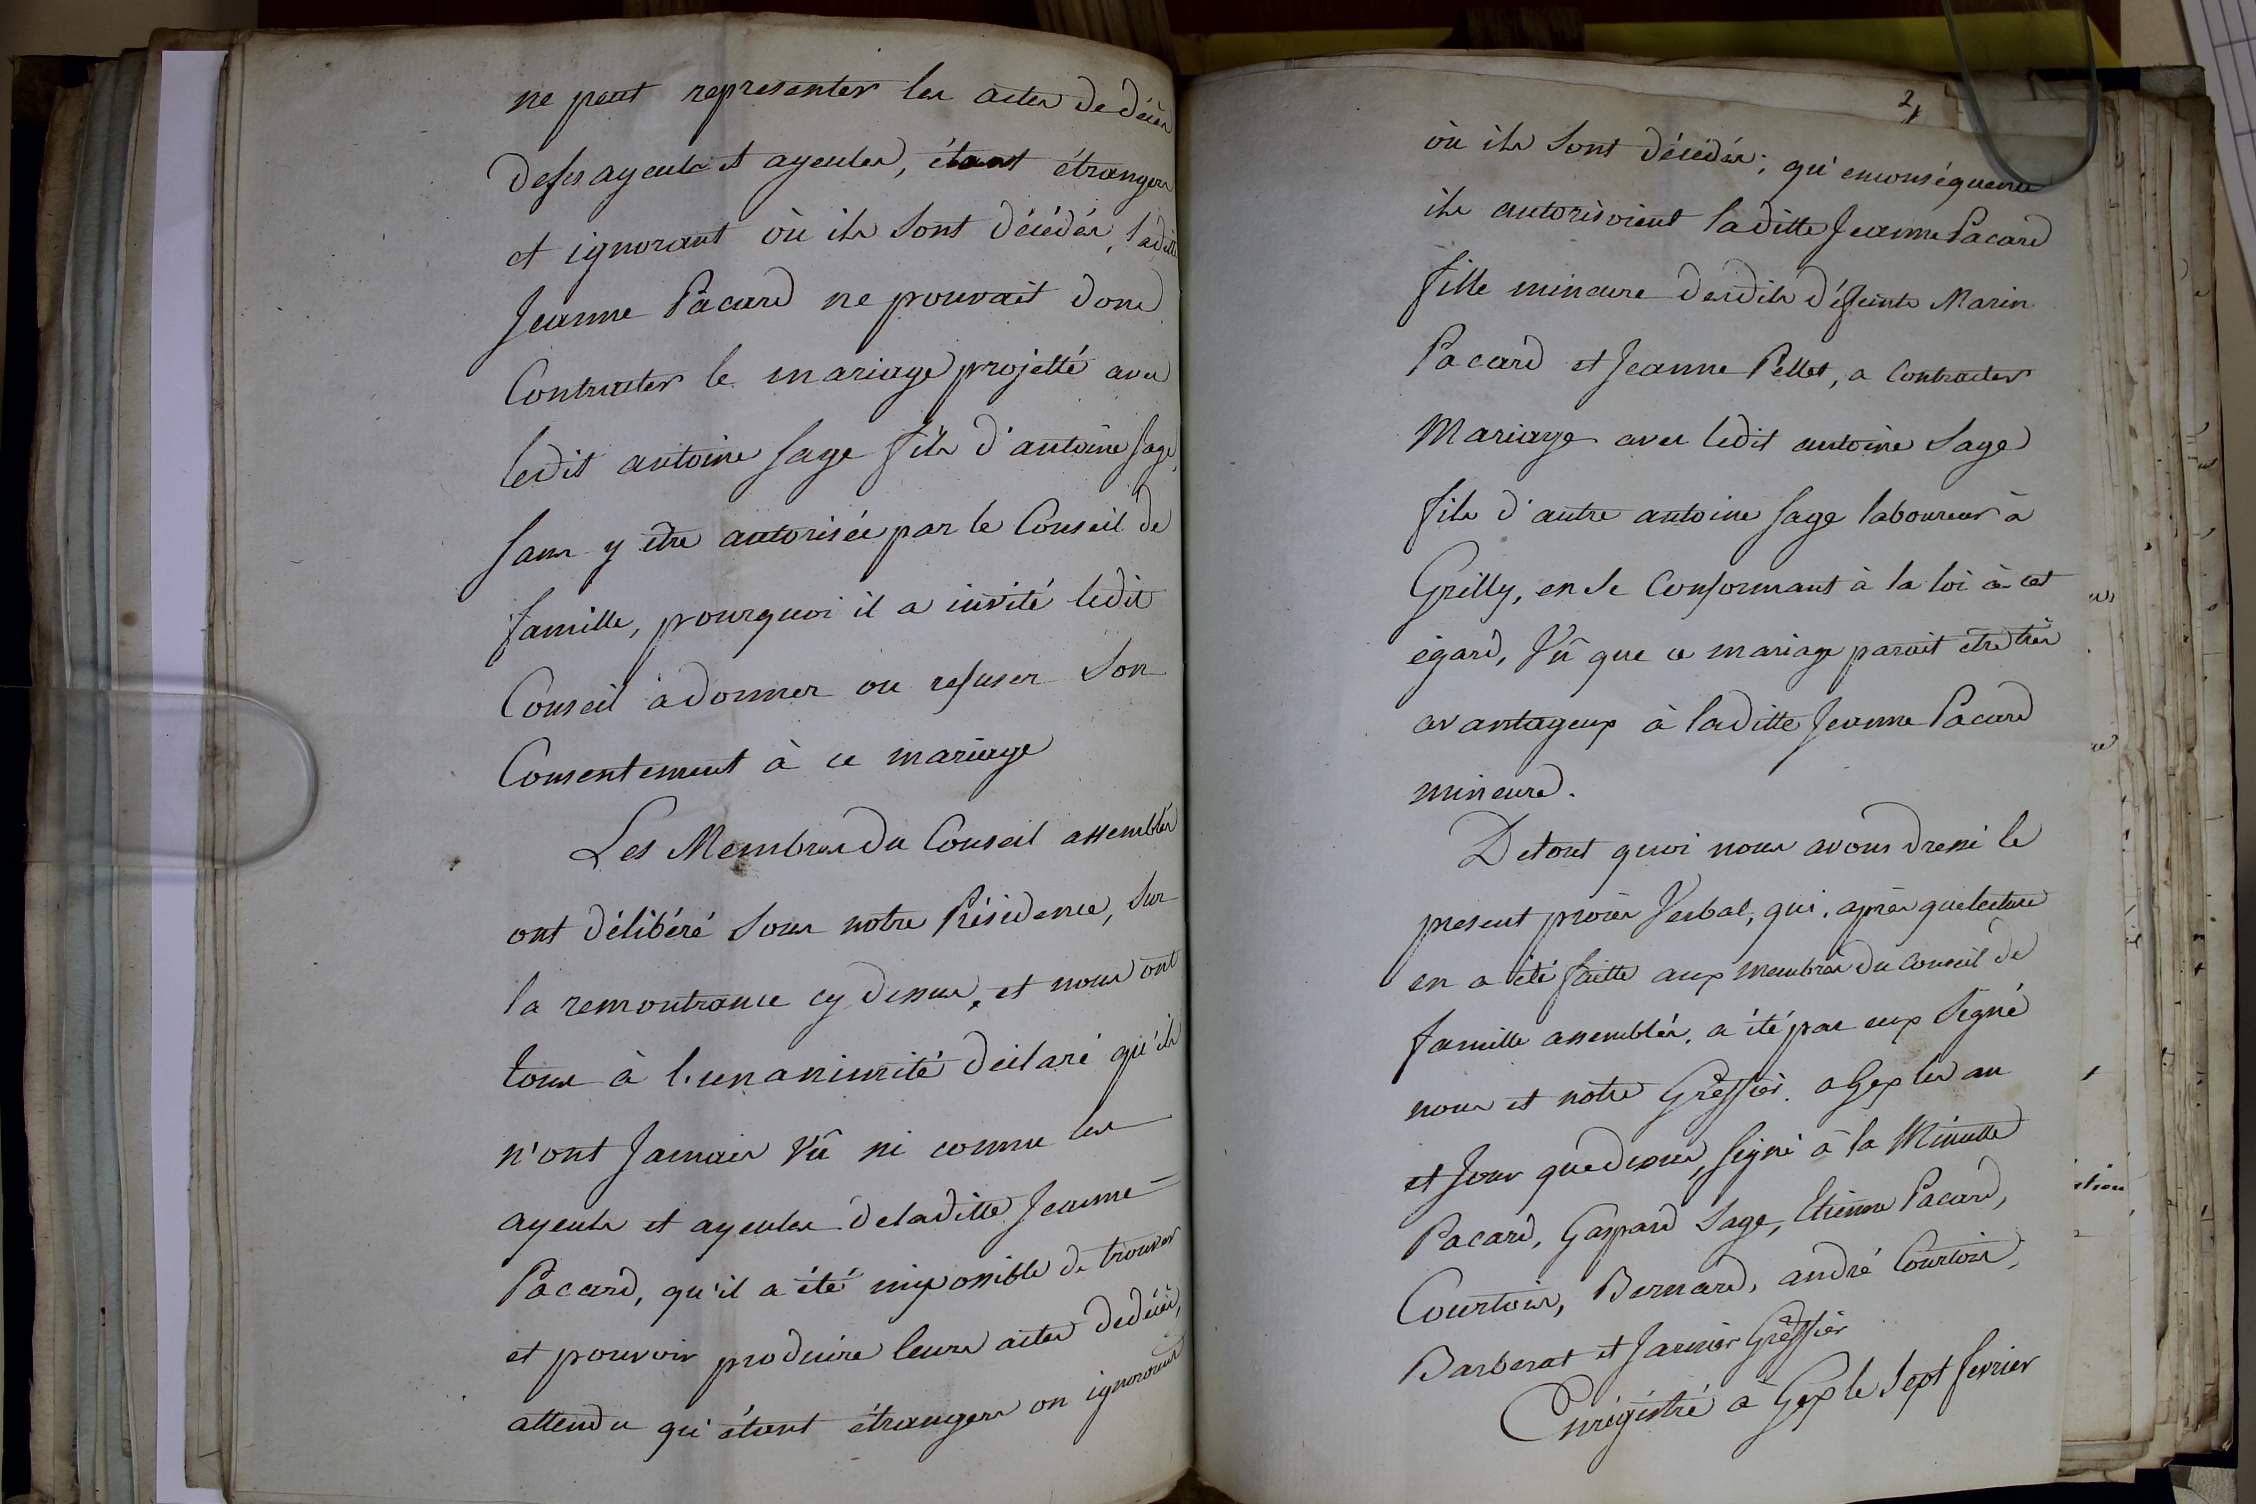 ne peut representer les actes de décès
de ses ayeuls et ayeules, étant étrangers
et ignorant où ils sont décédés, laditte
Jeanne Pacard ne pouvait donc
Contracter le mariage projetté avec
ledit antoine Sage fils d'antoine Sage,
sans y être autorisée par le Conseil de
famille, pourquoi il a invité ledit
Conseil à donner ou refuser son
Consentement à ce mariage
Les Membres du Conseil assemblés
ont délibéré sous notre Présidence, sur
la remontrance cy dessus, et nous ont
tous à l'unanimité déclaré qu'ils
n'ont Jamais Vû ni connu les
ayeuls et ayeules de laditte Jeanne
Pacard, qu'il a été impossible de trouver
et pouvoir produire leurs actes de décès,
attendu qu'étant étrangers on ignoroit
2
où ils sont décédés; qu'en conséquence
ils autorisoient laditte Jeanne Pacard
fille mineure desdits défunts Marin
Pacard et Jeanne Pellet, a Contracter
Mariage avec ledit antoine Sage
fils d'autre antoine Sage laboureur à
Grilly, en se Conformant à la loi à cet
égard, Vû que ce mariage parait etre très
avantageux à laditte Jeanne Pacard
mineure.
De tout quoi nous avons dressé le
present procès Verbal, qui, après que lecture
en a été faitte aux membres du Conseil de
famille assemblés, a été par eux signé
nous et notre Greffier. a Gex les an
et Jour que dessus, signé à la Minutte
Pacard, Gaspard Sage, Etienne Pacard,
Courtois, Bernard, andré Courtois,
Barberat et Jarnier Greffier
Enrégistré à Gex le sept fevrier